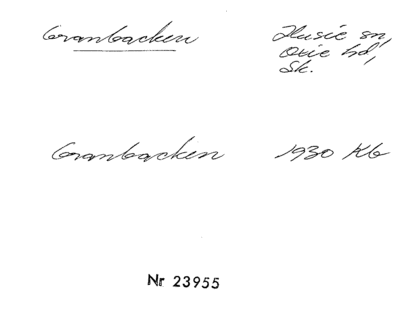 Granbacken
Husie sn,
Oxie hd,
Sk.
Granbacken 1930 Kb
Nr 23955